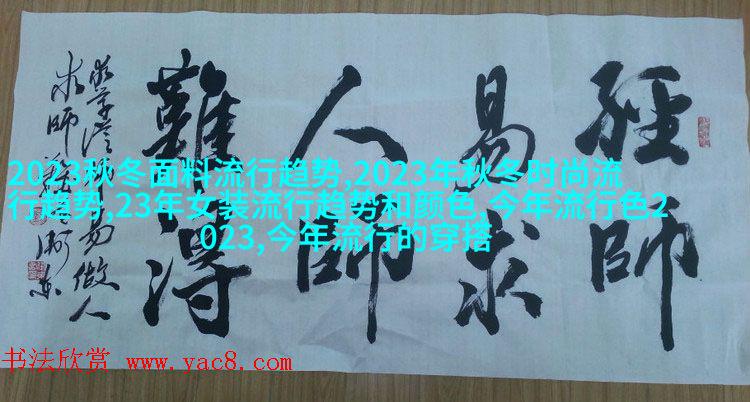 經師
易求
人師
難得
易做人
求師
2023秋冬面料流行趋势,2023年秋冬时尚流
行趋势,23年女装流行趋势和颜色,今年流行色2
023,今年流行的穿搭
书法欣赏 www.yac8.com